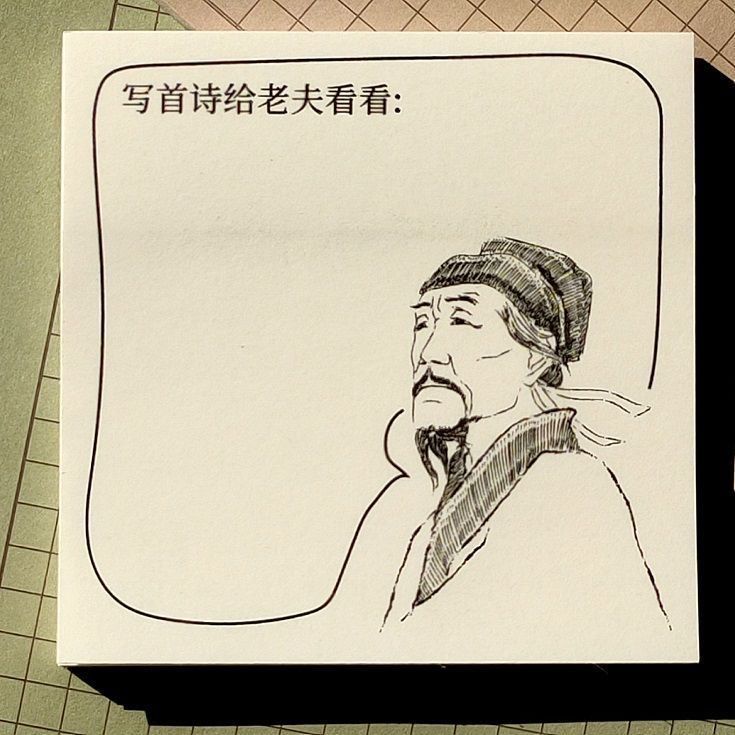 写首诗给老夫看看: